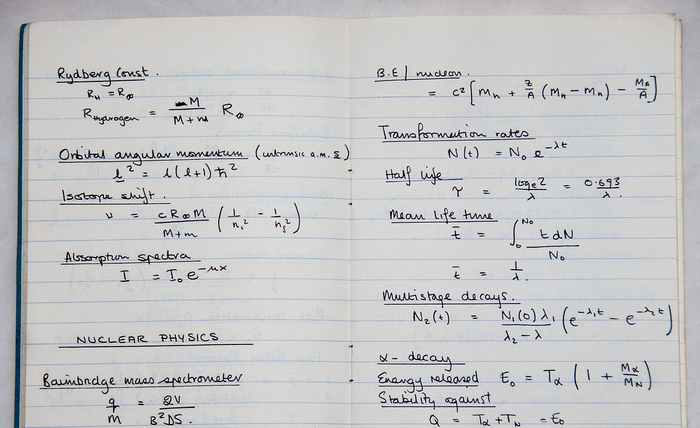 Rydberg Const.
R_H = R_∞
R_Hydrogen = M / M+m R_∞
Orbital angular momentum (intrinsic a.m. s)
l² = l(l+1)ħ²
Isotope shift.
ν = cR_∞M / M+m (1/n_i² - 1/n_j²)
Absorption spectra
I = I₀e^-μx
NUCLEAR PHYSICS
Bainbridge mass spectrometer
q/m = 2V / B²DS.
B.E / nucleon.
= c² [m_n + Z/A (M_H - m_n) - M_A/A]
Transformation rates
N(t) = N₀ e^-λt
Half life
τ = log_e 2 / λ = 0.693 / λ.
Mean life time
t̄ = ∫₀^N₀ t dN / N₀
t̄ = 1/λ.
Multistage decays.
N₂(t) = N₁(0) λ₁ / λ₂-λ (e^-λ₁t - e^-λ₂t)
α-decay
Energy released E₀ = T_α (1 + M_α/M_N)
Stability against
Q = T_α + T_N = E₀